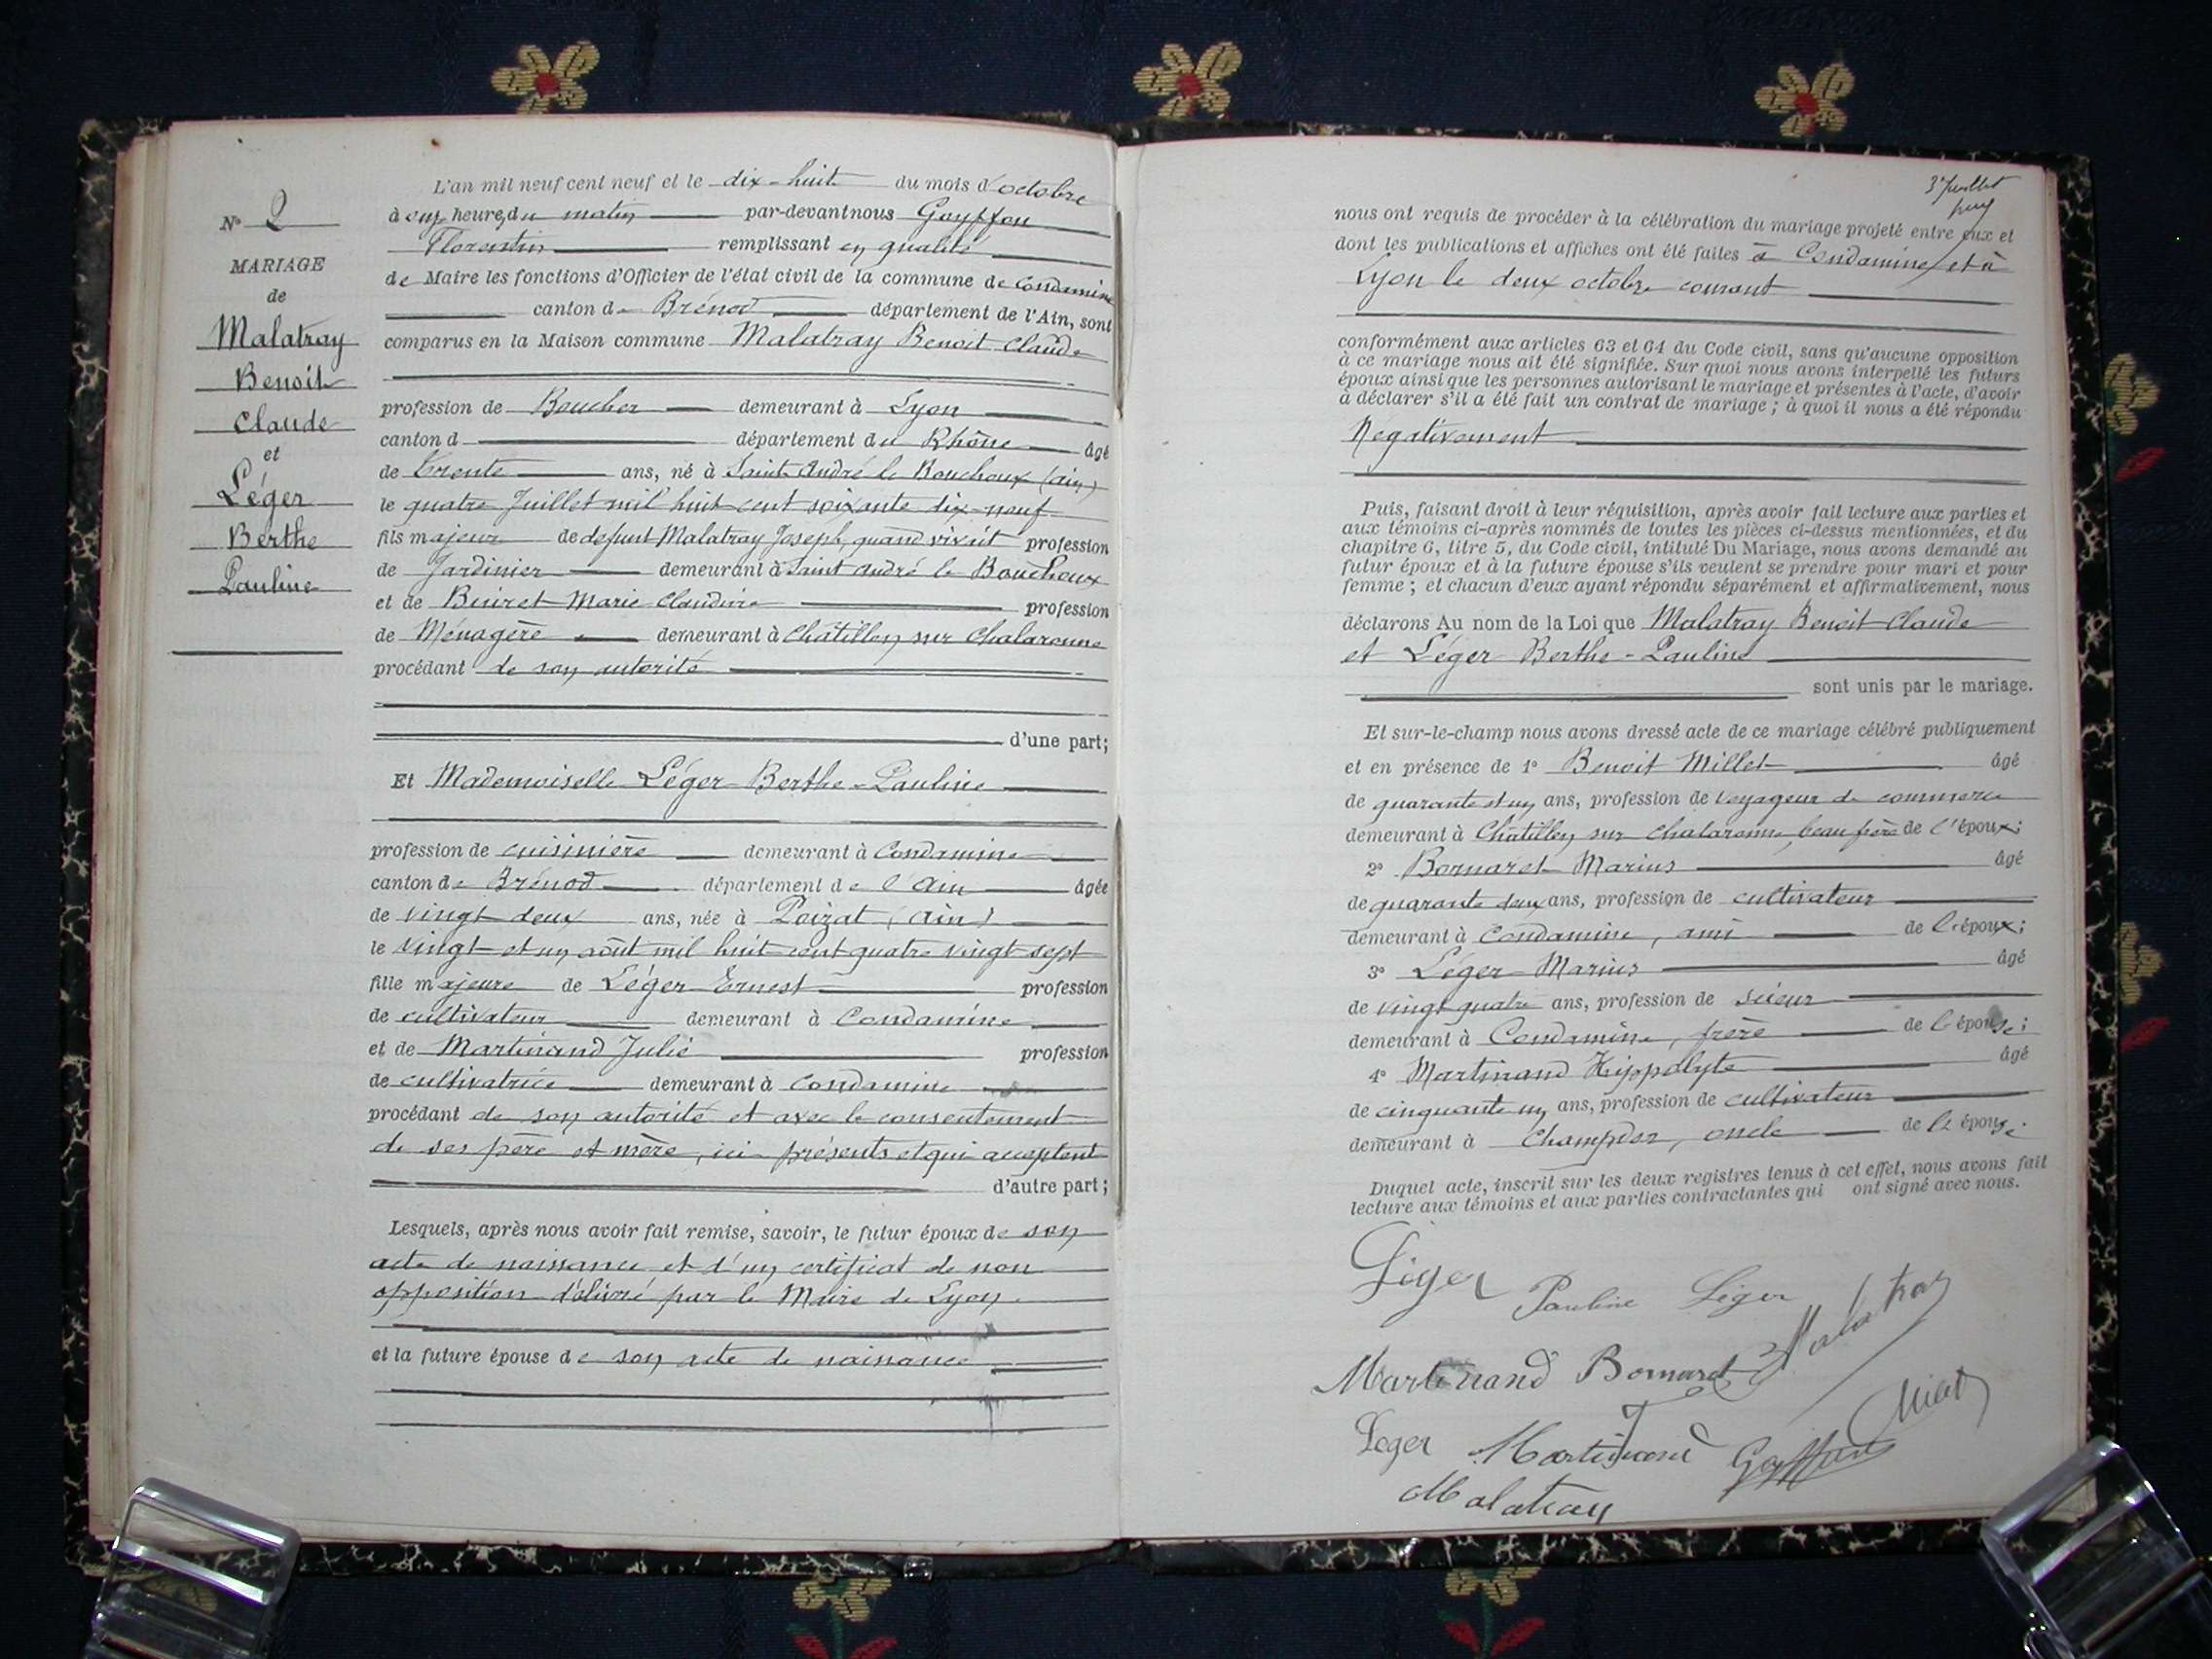 N° 2
MARIAGE
de
Malatray
Benoit
Claude
et
Léger
Berthe
Pauline
L'an mil neuf cent neuf et le dix-huit du mois d'octobre
à onze heures du matin par-devant nous Goyffon
Florentin remplissant en qualité
de Maire les fonctions d'Officier de l'état civil de la commune de Condamine
canton de Brénod département de l'Ain, sont
comparus en la Maison commune Malatray Benoit Claude
profession de Boucher demeurant à Lyon
canton d département du Rhône âgé
de trente ans, né à Saint André le Bouchoux (ain)
le quatre Juillet mil huit cent soixante dix-neuf
fils majeur de defunt Malatray Joseph, quand vivait profession
de Jardinier demeurant à Saint André le Bouchoux
et de Marie Claudine profession
de Ménagère demeurant à Châtillon sur Chalaronne
procédant de son autorité
d'une part;
Et Mademoiselle Léger Berthe-Pauline
profession de cuisinière demeurant à Condamine
canton de Brénod département de l'Ain âgée
de vingt deux ans, née à Poizat (Ain)
le vingt et un août mil huit cent quatre vingt sept
fille majeure de Léger Ernest profession
de cultivateur demeurant à Condamine
et de Martinand Julie profession
de cultivatrice demeurant à Condamine
procédant de son autorité et avec le consentement
de ses père et mère, ici présents et qui acceptent
d'autre part;
Lesquels, après nous avoir fait remise, savoir, le futur époux de son
acte de naissance et d'un certificat de non
opposition délivré par le Maire de Lyon
et la future épouse de son acte de naissance
nous ont requis de procéder à la célébration du mariage projeté entre eux et
dont les publications et affiches ont été faites à Condamine et à
Lyon le deux octobre courant
conformément aux articles 63 et 64 du Code civil, sans qu'aucune opposition
à ce mariage nous ait été signifiée. Sur quoi nous avons interpellé les futurs
époux ainsi que les personnes autorisant le mariage et présentes à l'acte, d'avoir
à déclarer s'il a été fait un contrat de mariage ; à quoi il nous a été répondu
Négativement
Puis, faisant droit à leur réquisition, après avoir fait lecture aux parties et
aux témoins ci-après nommés de toutes les pièces ci-dessus mentionnées, et du
chapitre 6, titre 5, du Code civil, intitulé Du Mariage, nous avons demandé au
futur époux et à la future épouse s'ils veulent se prendre pour mari et pour
femme ; et chacun d'eux ayant répondu séparément et affirmativement, nous
déclarons Au nom de la Loi que Malatray Benoit Claude
et Léger Berthe-Pauline
sont unis par le mariage.
Et sur-le-champ nous avons dressé acte de ce mariage célébré publiquement
et en présence de 1° Benoit Millet âgé
de quarante et un ans, profession de voyageur de commerce
demeurant à Châtillon sur Chalaronne, beau frère de l'époux;
2° Bornaret Marius âgé
de quarante deux ans, profession de cultivateur
demeurant à Condamine, ami de l'époux;
3° Léger Marius âgé
de vingt quatre ans, profession de scieur
demeurant à Condamine, frère de l'épouse;
4° Martinand Hippolyte âgé
de cinquante un ans, profession de cultivateur
demeurant à Champdor, oncle de l'épouse
Duquel acte, inscrit sur les deux registres tenus à cet effet, nous avons fait
lecture aux témoins et aux parties contractantes qui ont signé avec nous.
Léger Pauline Léger Malatray
Martinand Bornaret
Leger Martinand Goyffon Milet
Malatray